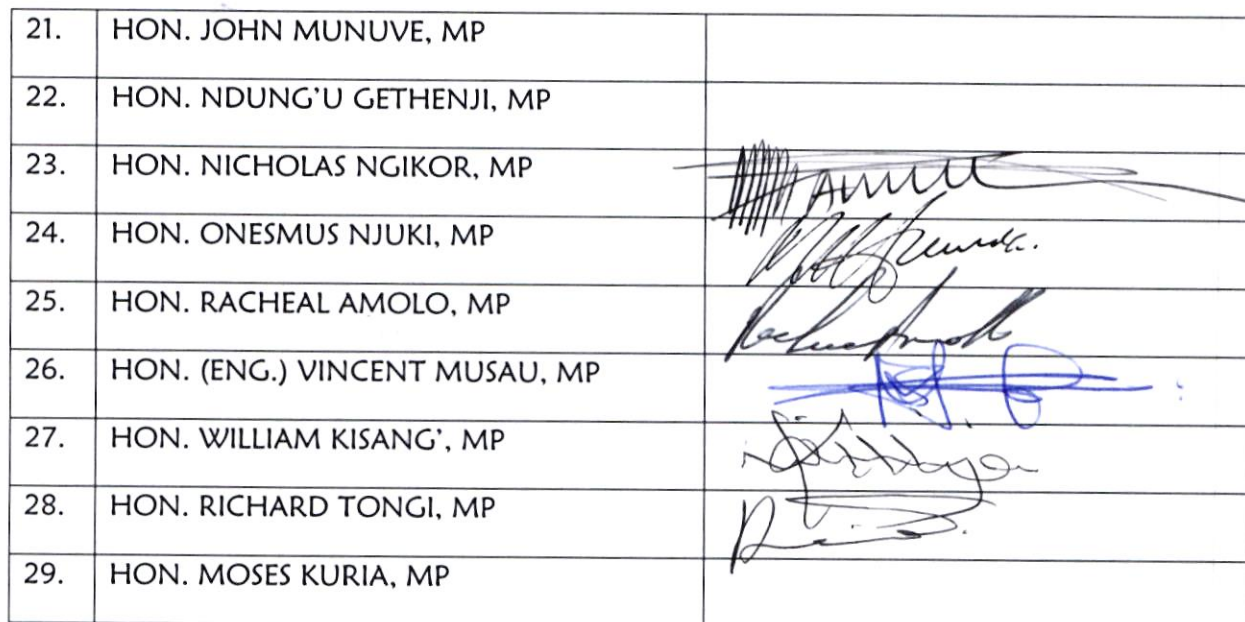 21. HON. JOHN MUNUVE, MP
22. HON. NDUNG'U GETHENJI, MP
23. HON. NICHOLAS NGIKOR, MP
24. HON. ONESMUS NJUKI, MP
25. HON. RACHEAL AMOLO, MP
26. HON. (ENG.) VINCENT MUSAU, MP
27. HON. WILLIAM KISANG', MP
28. HON. RICHARD TONGI, MP
29. HON. MOSES KURIA, MP